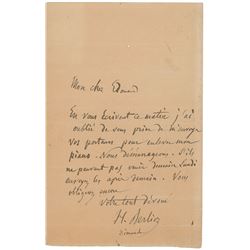 Mon cher Edouard
En vous écrivant ce matin j'ai
oublié de vous prier de m'envoyer
vos porteurs pour enlever mon
piano. Nous déménageons. S'ils
ne peuvent pas venir demain lundi
envoyez les après demain. Vous
obligerez encore
Votre tout dévoué
H. Berlioz
dimanche